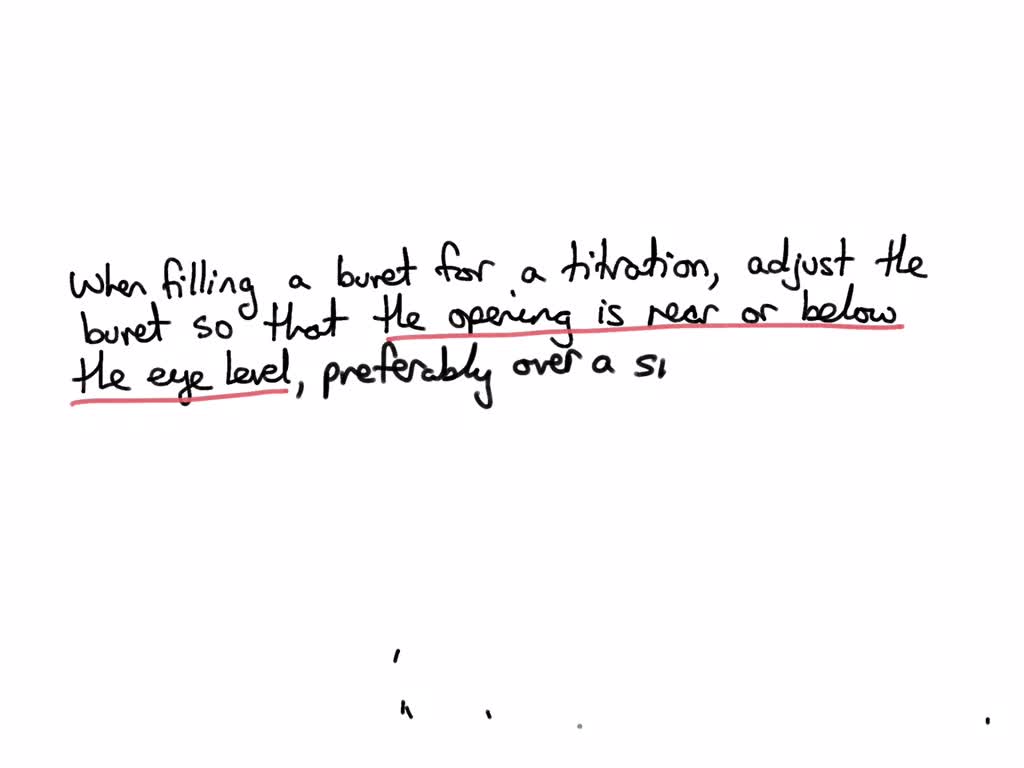 When filling a buret for a titration, adjust the
buret so that the opening is near or below
the eye level, preferably over a